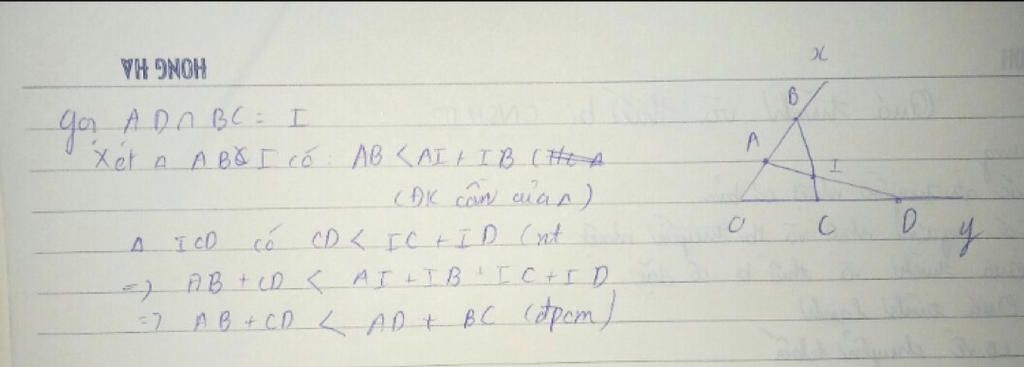 HONG HA
Gọi AD ∩ BC = I
Xét Δ ABI có AB < AI + IB
(ĐK cần của Δ)
Δ ICD có CD < IC + ID (nt
=> AB + CD < AI + IB + IC + ID
=> AB + CD < AD + BC (đpcm)
x
B
A
I
O C D y